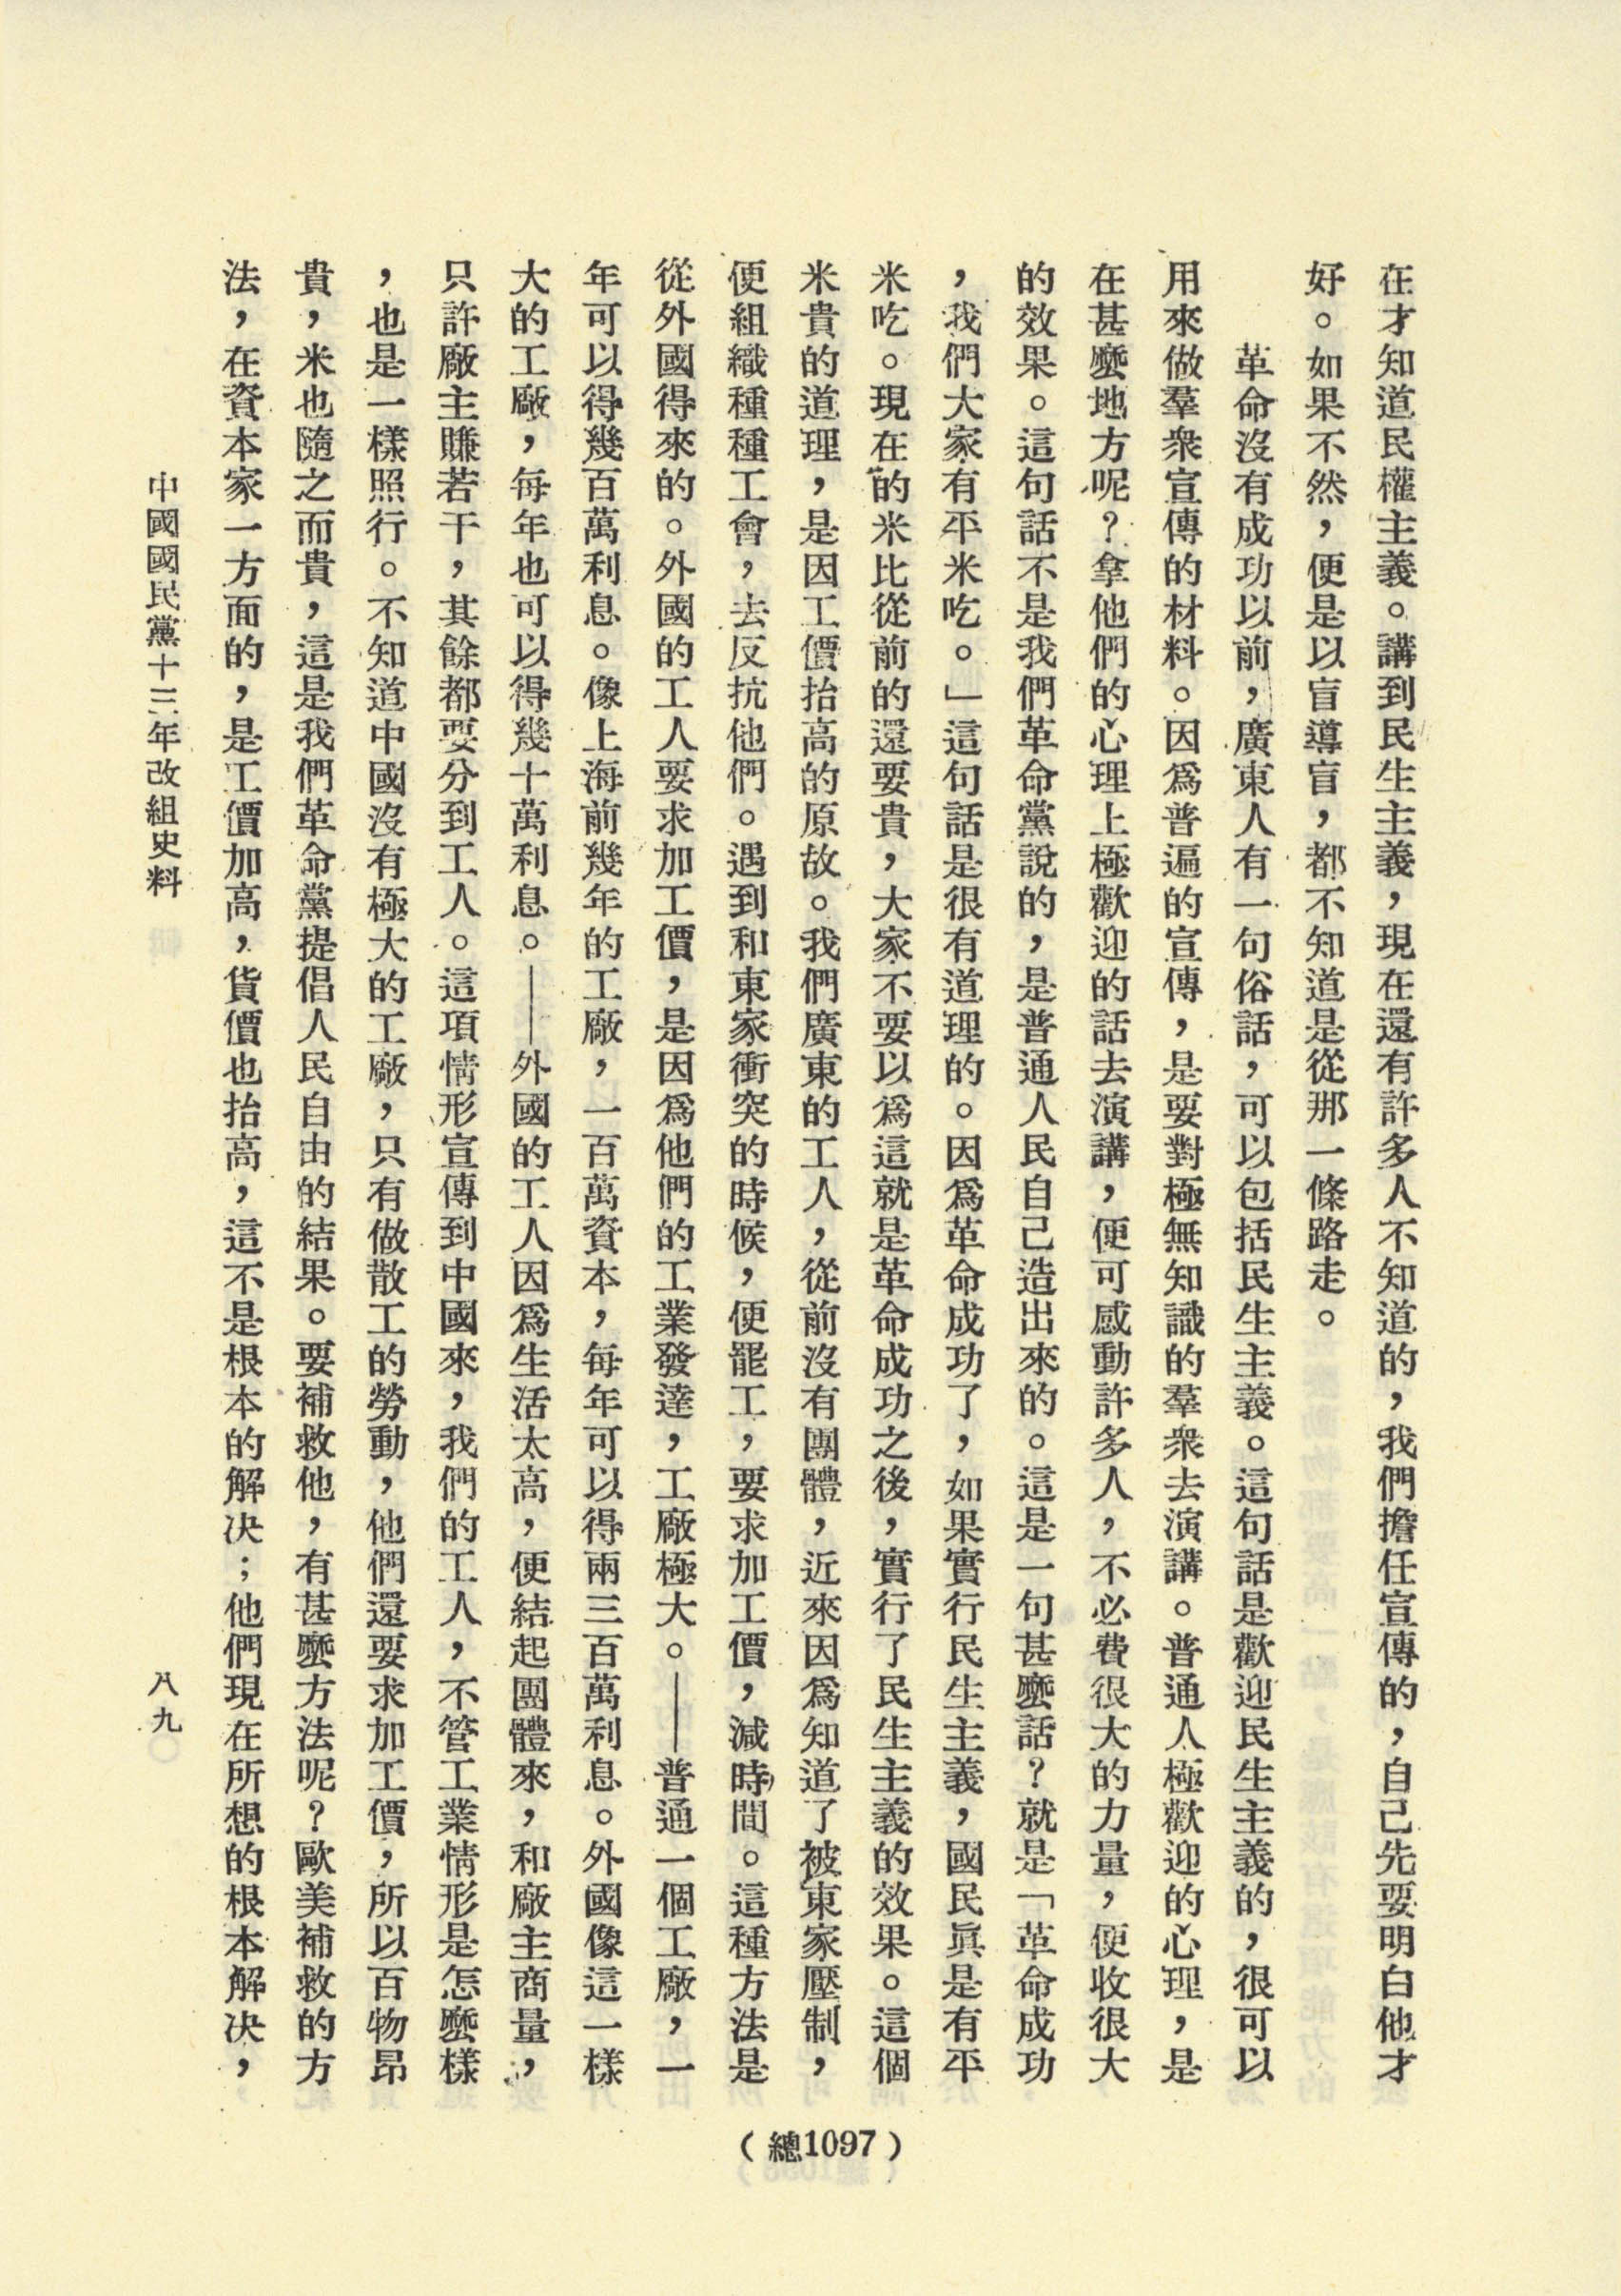 在才知道民權主義。講到民生主義，現在還有許多人不知道的，我們擔任宣傳的，自己先要明白他才
好。如果不然，便是以盲導盲，都不知道是從那一條路走。
革命沒有成功以前，廣東人有一句俗話，可以包括民生主義。這句話是歡迎民生主義的，很可以
用來做羣衆宣傳的材料。因爲普遍的宣傳，是要對極無知識的羣衆去演講。普通人極歡迎的心理，是
在甚麼地方呢？拿他們的心理上極歡迎的話去演講，便可感動許多人，不必費很大的力量，便收很大
的效果。這句話不是我們革命黨說的，是普通人民自己造出來的。這是一句甚麼話？就是「革命成功
，我們大家有平米吃。」這句話是很有道理的。因爲革命成功了，如果實行民生主義，國民眞是有平
米吃。現在的米比從前的還要貴，大家不要以爲這就是革命成功之後，實行了民生主義的效果。這個
米貴的道理，是因工價抬高的原故。我們廣東的工人，從前沒有團體，近來因爲知道了被東家壓制，
便組織種種工會，去反抗他們。遇到和東家衝突的時候，便罷工，要求加工價，減時間。這種方法是
從外國得來的。外國的工人要求加工價，是因爲他們的工業發達，工廠極大。——普通一個工廠，一
年可以得幾百萬利息。像上海前幾年的工廠，一百萬資本，每年可以得兩三百萬利息。外國像這一樣
大的工廠，每年也可以得幾十萬利息。——外國的工人因爲生活太高，便結起團體來，和廠主商量，
只許廠主賺若干，其餘都要分到工人。這項情形宣傳到中國來，我們的工人，不管工業情形是怎麼樣
，也是一樣照行。不知道中國沒有極大的工廠，只有做散工的勞動，他們還要求加工價，所以百物昂
貴，米也隨之而貴，這是我們革命黨提倡人民自由的結果。要補救他，有甚麼方法呢？歐美補救的方
法，在資本家一方面的，是工價加高，貨價也抬高，這不是根本的解决；他們現在所想的根本解决，
中國國民黨十三年改組史料
八九
（總1097）